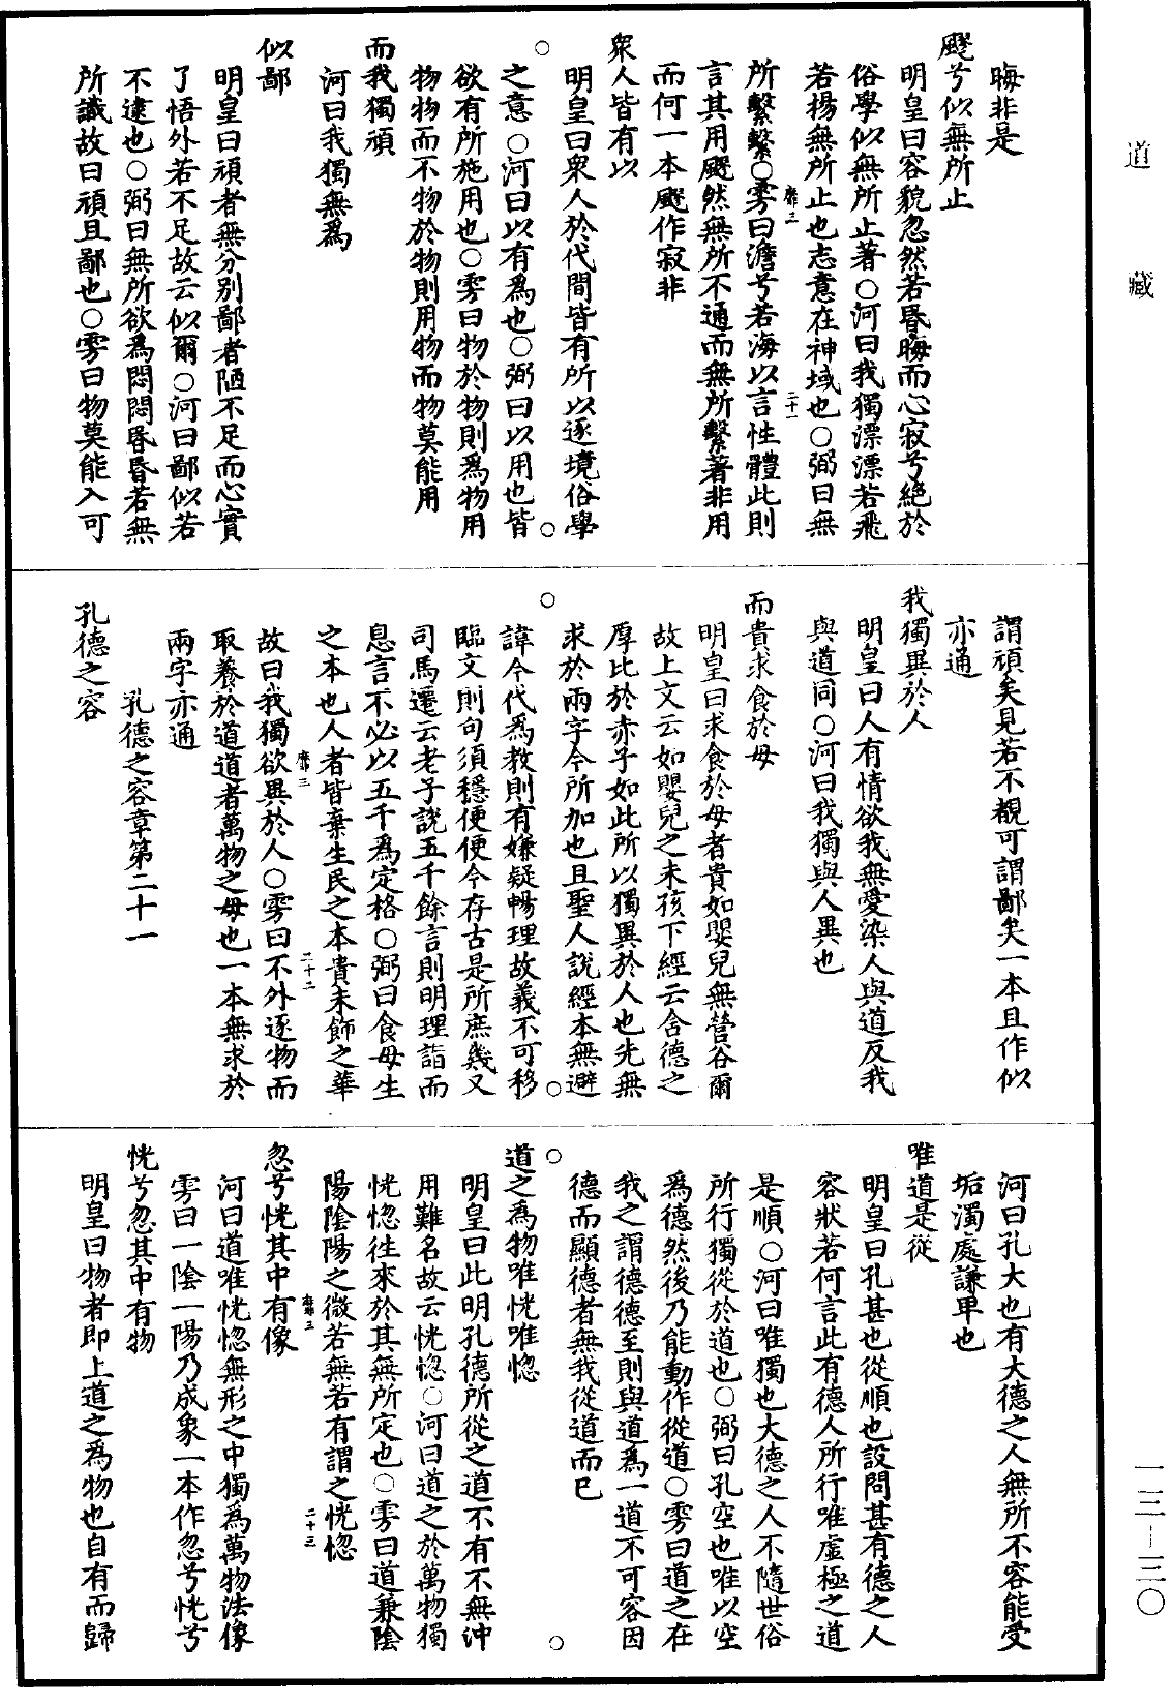 道藏
晦非是
飂兮似無所止
明皇曰容貌忽然若昬晦而心寂兮絕於
俗學似無所止著○河曰我獨漂漂若飛
若揚無所止也志意在神域也○弼曰無
所繫縶○雱曰澹兮若海以言性體此則
言其用飂然無所不通而無所繫著非用
而何一本飂作寂非
衆人皆有以
明皇曰衆人於代間皆有所以逐境俗學
之意○河曰以有為也○弼曰以用也皆
欲有所施用也○雱曰物於物則為物用
物物而不物於物則用物而物莫能用
而我獨頑
河曰我獨無為
似鄙
明皇曰頑者無分別鄙者陋不足而心實
了悟外若不足故云似爾○河曰鄙似若
不逮也○弼曰無所欲為悶悶昬昬若無
所識故曰頑且鄙也○雱曰物莫能入可
謂頑矣見若不覩可謂鄙矣一本且作似
亦通
我獨異於人
明皇曰人有情欲我無愛染人與道反我
與道同○河曰我獨與人異也
而貴求食於母
明皇曰求食於母者貴如嬰兒無營谷爾
故上文云如嬰兒之未孩下經云含德之
厚比於赤子如此所以獨異於人也先無
求於兩字今所加也且聖人說經本無避
諱今代為教則有嫌疑暢理故義不可移
臨文則句須穩便便今存古是所庶幾又
司馬遷云老子說五千餘言則明理詣而
息言不必以五千為定格○弼曰食母生
之本也人者皆棄生民之本貴末飾之華
故曰我獨欲異於人○雱曰不外逐物而
取養於道道者萬物之母也一本無求於
兩字亦通
孔德之容章第二十一
孔德之容
河曰孔大也有大德之人無所不容能受
垢濁處謙卑也
唯道是從
明皇曰孔甚也從順也設問甚有德之人
容狀若何言此有德人所行唯虛極之道
是順○河曰唯獨也大德之人不隨世俗
所行獨從於道也○弼曰孔空也唯以空
為德然後乃能動作從道○雱曰道之在
我之謂德德至則與道為一道不可容因
德而顯德者無我從道而已
道之為物唯恍唯惚
明皇曰此明孔德所從之道不有不無沖
用難名故云恍惚○河曰道之於萬物獨
恍惚往來於其無所定也○雱曰道兼陰
陽陰陽之微若無若有謂之恍惚
忽兮恍其中有像
河曰道唯恍惚無形之中獨為萬物法像
雱曰一陰一陽乃成象一本作忽兮恍兮
恍兮忽其中有物
明皇曰物者即上道之為物也自有而歸
一三–三〇